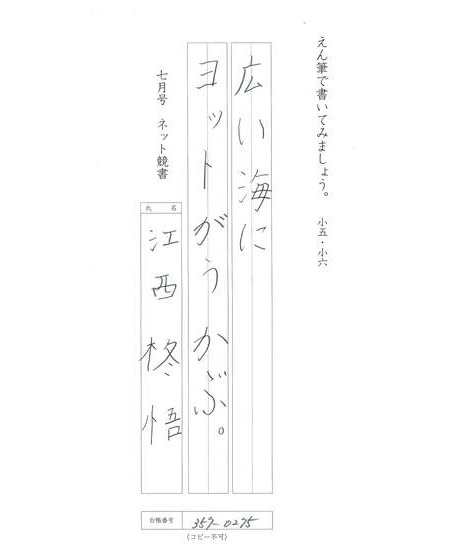 えん筆で書いてみましょう。 小五・小六
広い海に
ヨットがうかぶ。
七月号 ネット競書
氏名
江西柊悟
台帳番号 357-0275
(コピー不可)